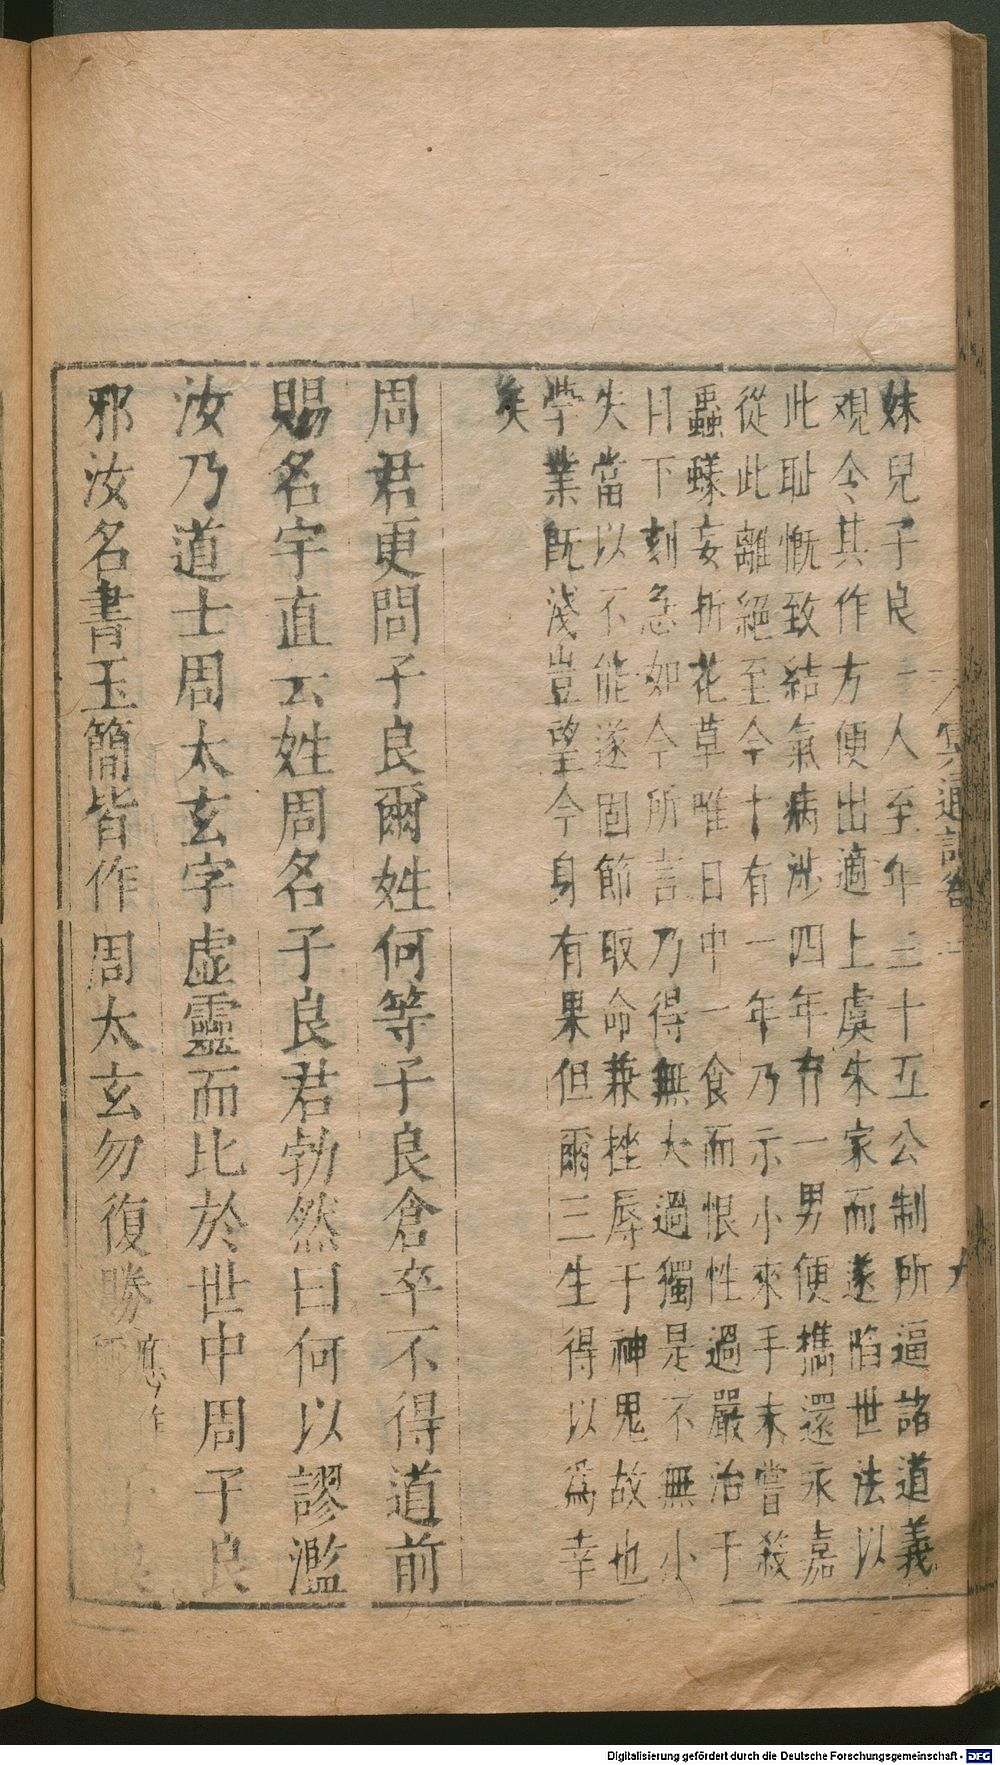 冥通記卷二
九
妹兒子良一人至年三十五公制所逼諸道義
觀令其作方便出適上虞朱家而遂陷世法以
此耻慨致結氣病涉四年有一男便攜還永嘉
從此離絕至今十有一年乃示小來手未嘗殺
蟲蟻妄折花草唯日中一食而恨性過嚴治于
日下刻急如今所言乃得無大過獨是不無小
失當以不能遂固節取命兼挫辱于神鬼故也
學業既淺豈望今身有果但爾三生得以為幸
矣
周君更問子良爾姓何等子良倉卒不得道前
賜名字直云姓周名子良君勃然曰何以謬濫
汝乃道士周太玄字虛靈而比於世中周子良
邪汝名書玉簡皆作周太玄勿復勝應作
Digitalisierung gefördert durch die Deutsche Forschungsgemeinschaft - DFG